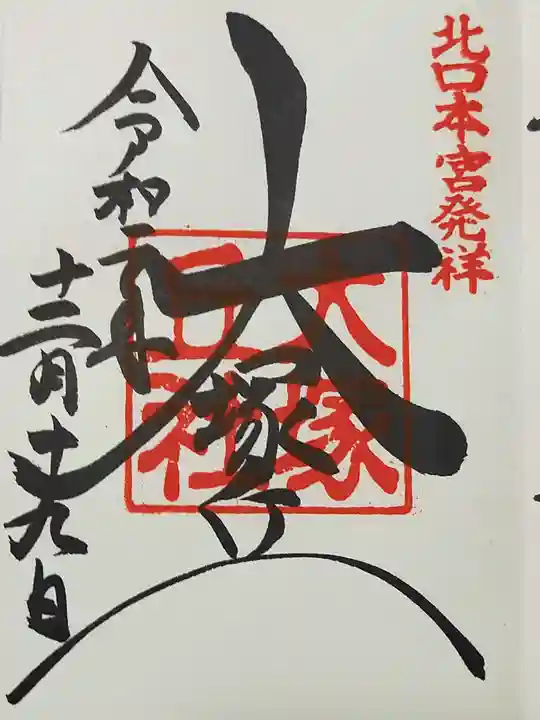 北口本宮発祥
大塚丘
大塚
丘社
令和元年
十二月十九日